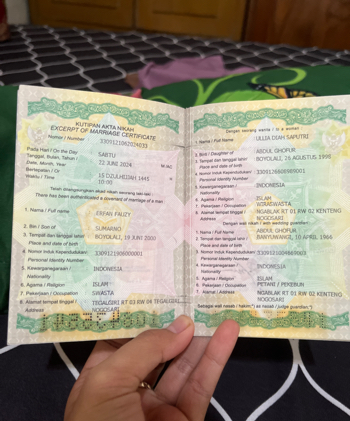 KUTIPAN AKTA NIKAH
EXCERPT OF MARRIAGE CERTIFICATE
Nomor / Number
Pada Hari / On the Day SABTU
Tanggal, Bulan, Tahun / 22 JUNI 2024 M./AD
Date, Month, Year
Bertepatan / Or 15 DZULHIJJAH 1445 H
Waktu / Time 10:00
Telah dilangsungkan akad nikah seorang laki-laki :
There has been authenticated a covenant of marriage of a man
1. Nama / Full Name
2. Bin / Son of SUMARNO
3. Tempat dan tanggal lahir BOYOLALI, 19 JUNI
Place and date of birth
4. Nomor Induk Kependudukan
Personal Identity Number
5. Kewarganegaraan INDONESIA
Nationality
6. Agama / Religion ISLAM
7. Pekerjaan / Occupation SWASTA
8. Alamat tempat tinggal TEGALGIRI RT 03 RW 04
Address NOGOSARI
Dengan seorang wanita / to a woman
1. Nama / Full Name ULLIA DIAH SAPUTRI
2. Binti / Daughter of ABDUL GHOFUR
3. Tempat dan tanggal lahir BOYOLALI, 25 AGUSTUS 1998
Place and date of birth
4. Nomor Induk Kependudukan
Personal Identity Number
5. Kewarganegaraan INDONESIA
Nationality
6. Agama / Religion ISLAM
7. Pekerjaan / Occupation WIRASWASTA
8. Alamat tempat tinggal NGABLAK RT 01 RW 02 KENTENG
Address NOGOSARI
Dengan wali nikah / with wedding guardian :
1. Nama / Full Name ABDUL GHOFUR
2. Tempat dan tanggal lahir BANYUWANGI, 10 APRIL 1966
Place and date of birth
3. Nomor Induk Kependudukan
Personal Identity Number
4. Kewarganegaraan INDONESIA
Nationality
5. Agama / Religion ISLAM
6. Pekerjaan / Occupation PETANI / PEKEBUN
7. Alamat / Address NGABLAK RT 01 RW 02 KENTENG
NOGOSARI
Sebagai wali nasab / hakim*) as nasab / judge guardian*)